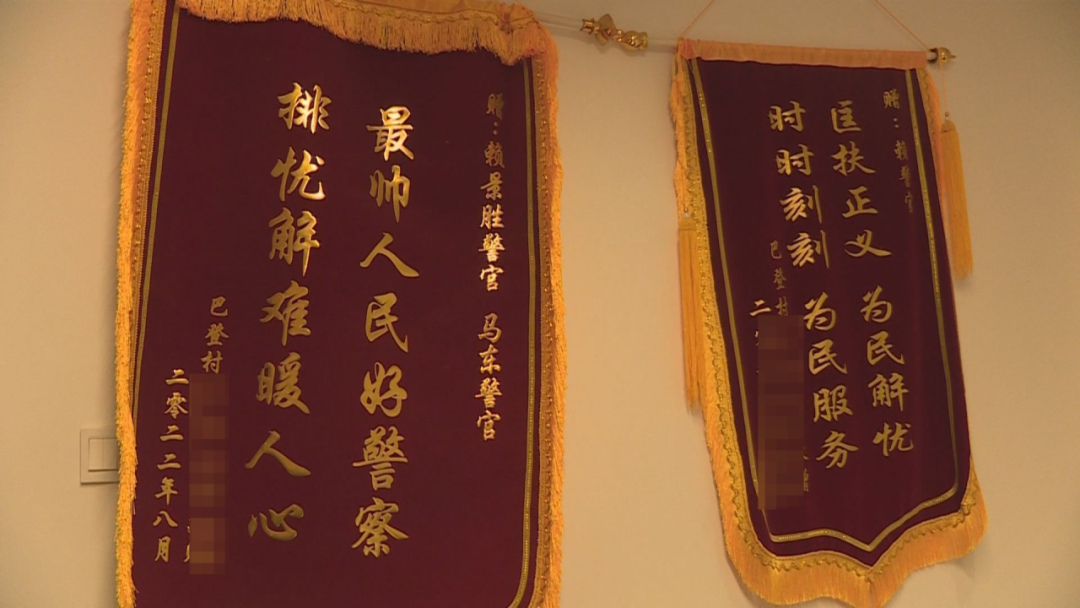 赠：赖景胜警官 马东警官
最帅人民好警察
排忧解难暖人心
巴登村
二零二二年八月
赠：赖警官
匡扶正义 为民解忧
时时刻刻 为民服务
巴登村
二